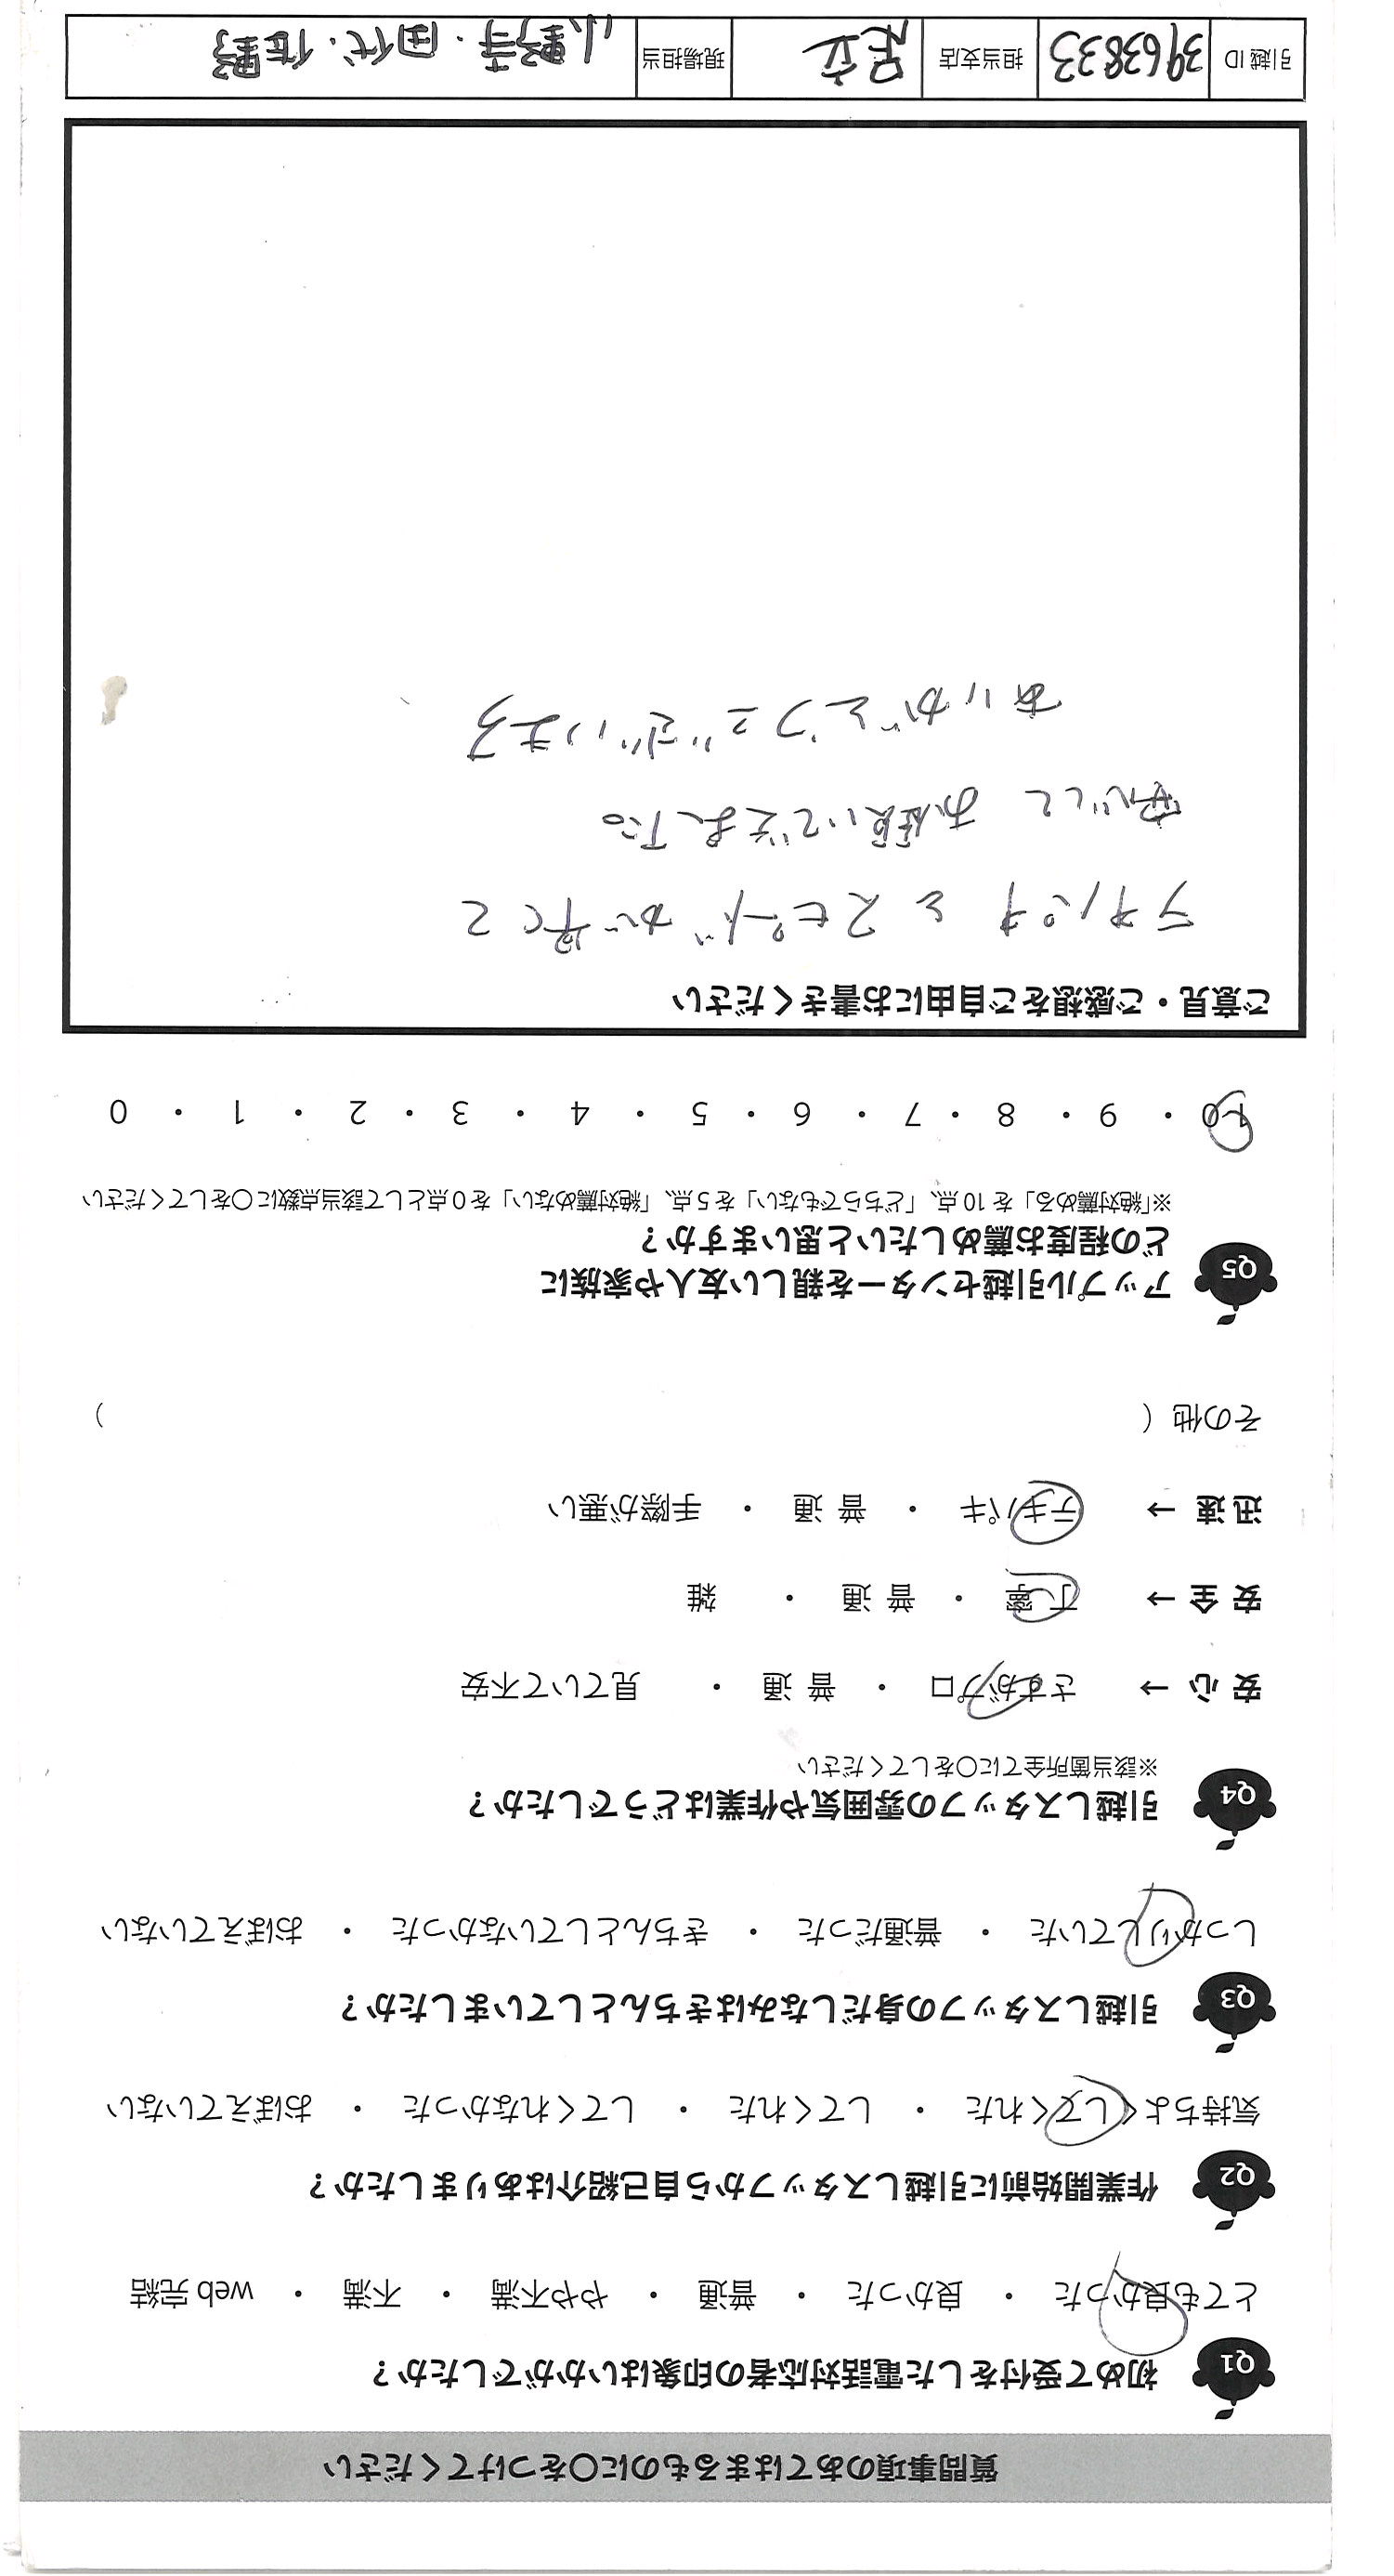 質問事項のあてはまるものに○をつけてください
Q1 初めて受付をした電話対応者の印象はいかがでしたか？
とても良かった ・ 良かった ・ 普通 ・ やや不満 ・ 不満 ・ web 完結
Q2 作業開始前に引越しスタッフから自己紹介はありましたか？
気持ちよくしてくれた ・ してくれた ・ してくれなかった ・ おぼえていない
Q3 引越しスタッフの身だしなみはきちんとしていましたか？
しっかりしていた ・ 普通だった ・ きちんとしていなかった ・ おぼえていない
Q4 引越しスタッフの雰囲気や作業はどうでしたか？
※該当箇所全てに○をしてください
安 心 → さすがプロ ・ 普 通 ・ 見ていて不安
安 全 → 丁寧 ・ 普 通 ・ 雑
迅 速 → テキパキ ・ 普 通 ・ 手際が悪い
その他（ ）
Q5 アップル引越センターを親しい友人や家族に
どの程度お薦めしたいと思いますか？
※「絶対薦める」を 10 点、「どちらでもない」を 5 点、「絶対薦めない」を 0 点として該当点数に○をしてください
10 ・ 9 ・ 8 ・ 7 ・ 6 ・ 5 ・ 4 ・ 3 ・ 2 ・ 1 ・ 0
ご意見・ご感想をご自由にお書きください
テキパキとスピードが早くて
安心して お願いできました。
ありがとうございます
引越 ID 3963833 担当支店 足立 現場担当 小野寺・田代・佐野